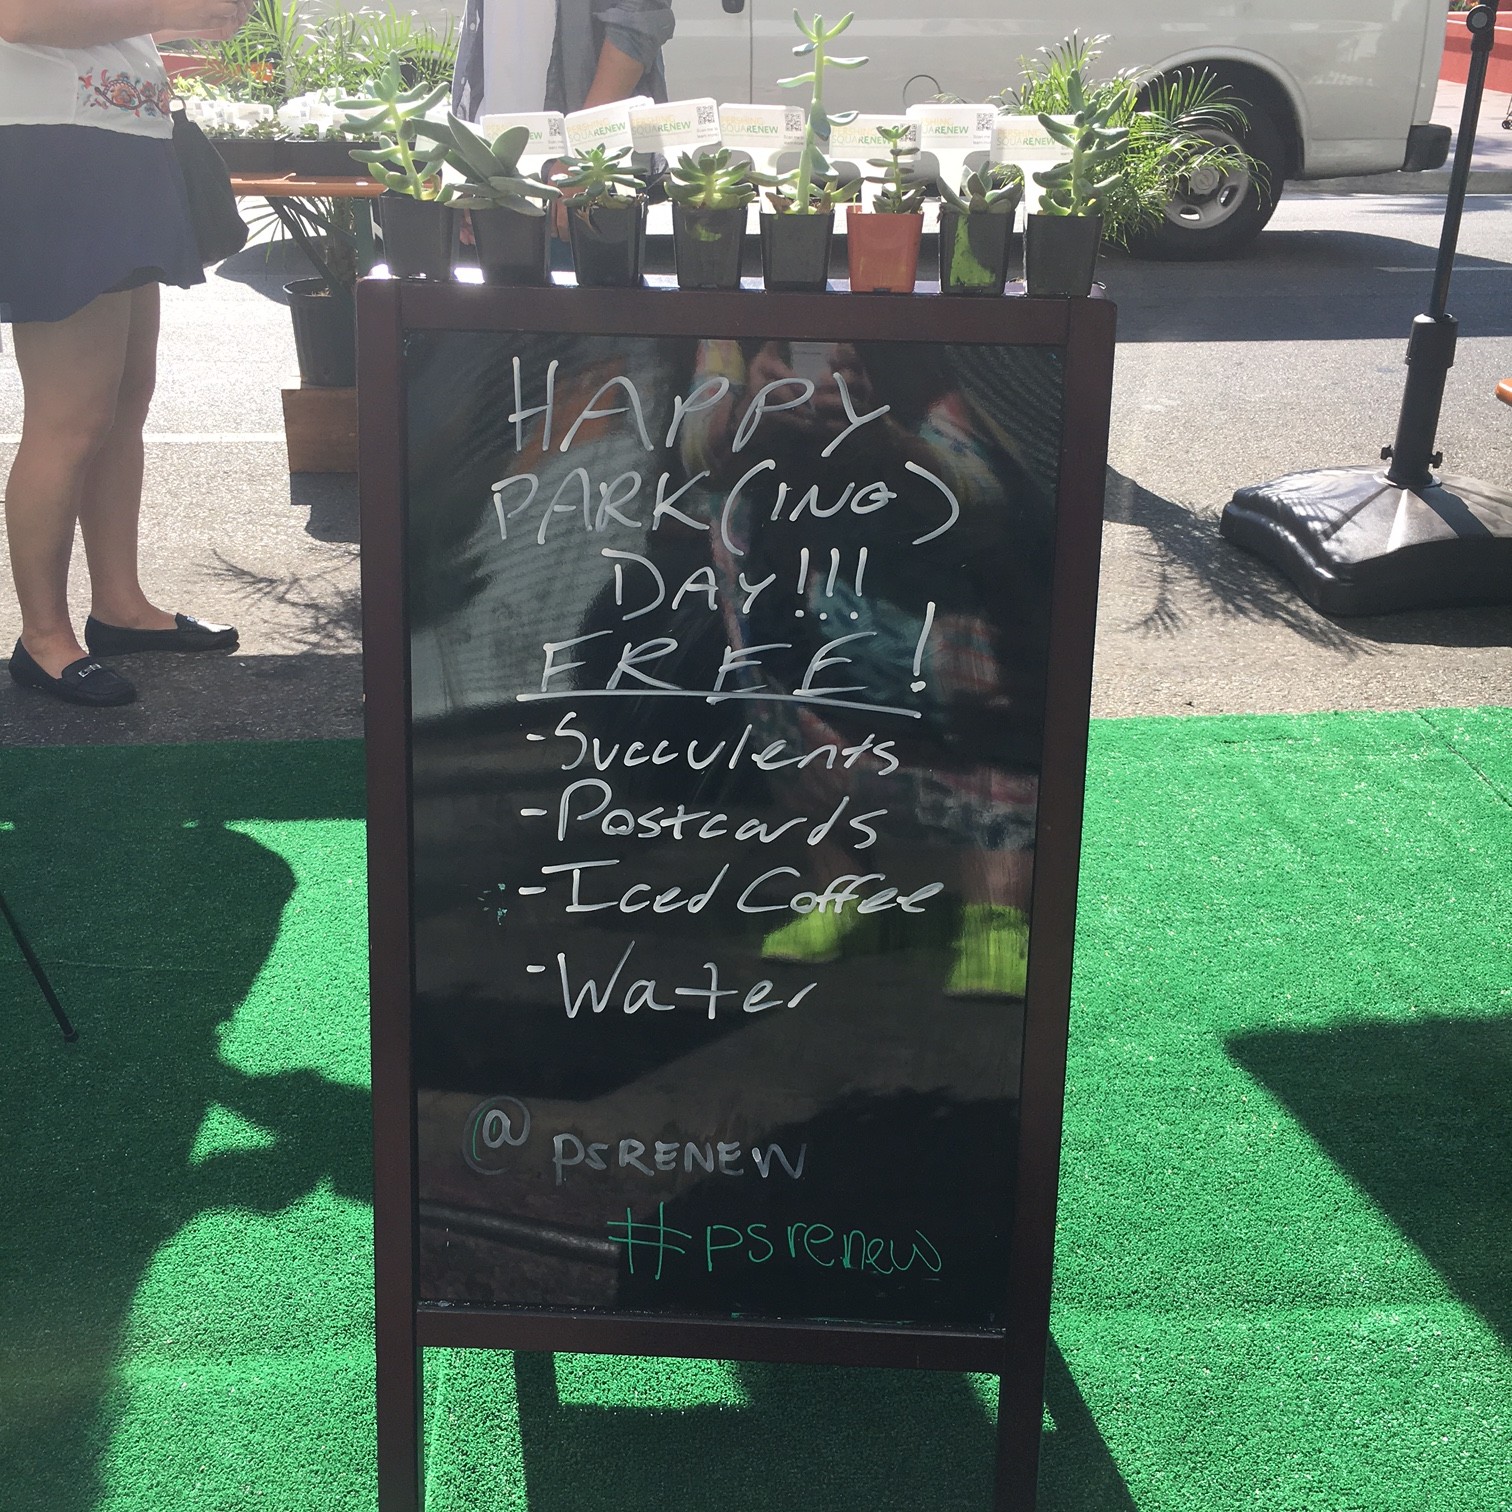 SQUARENEW
SQUARENEW
HAPPY
PARK(ING)
DAY!!!
FREE!
-Succulents
-Postcards
-Iced Coffee
-Water
@PSRENEW
#psrenew